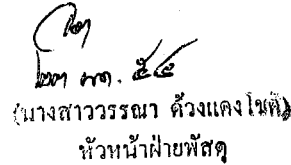 ๒๓ พค. ๕๔
(นางสาววรรณา ด้วงแดงโชติ)
หัวหน้าฝ่ายพัสดุ